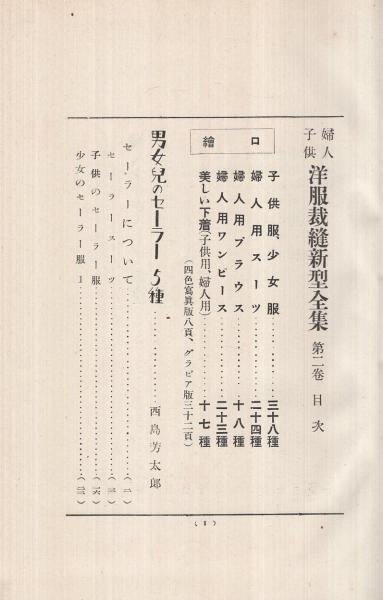 婦人
子供
洋服裁縫新型全集 第二巻 目次
口繪
子供服、少女服…………三十八種
婦人用スーツ…………二十四種
婦人用ブラウス…………十八種
婦人用ワンピース…………二十三種
美しい下着(子供用、婦人用)…………十七種
(四色寫眞版八頁、グラビア版三十二頁)
男女兒のセーラー5種…………西島芳太郎
セーラーについて…………(二)
セーラースーツ…………(三)
子供のセーラー服…………(一六)
少女のセーラー服Ⅰ…………
(1)